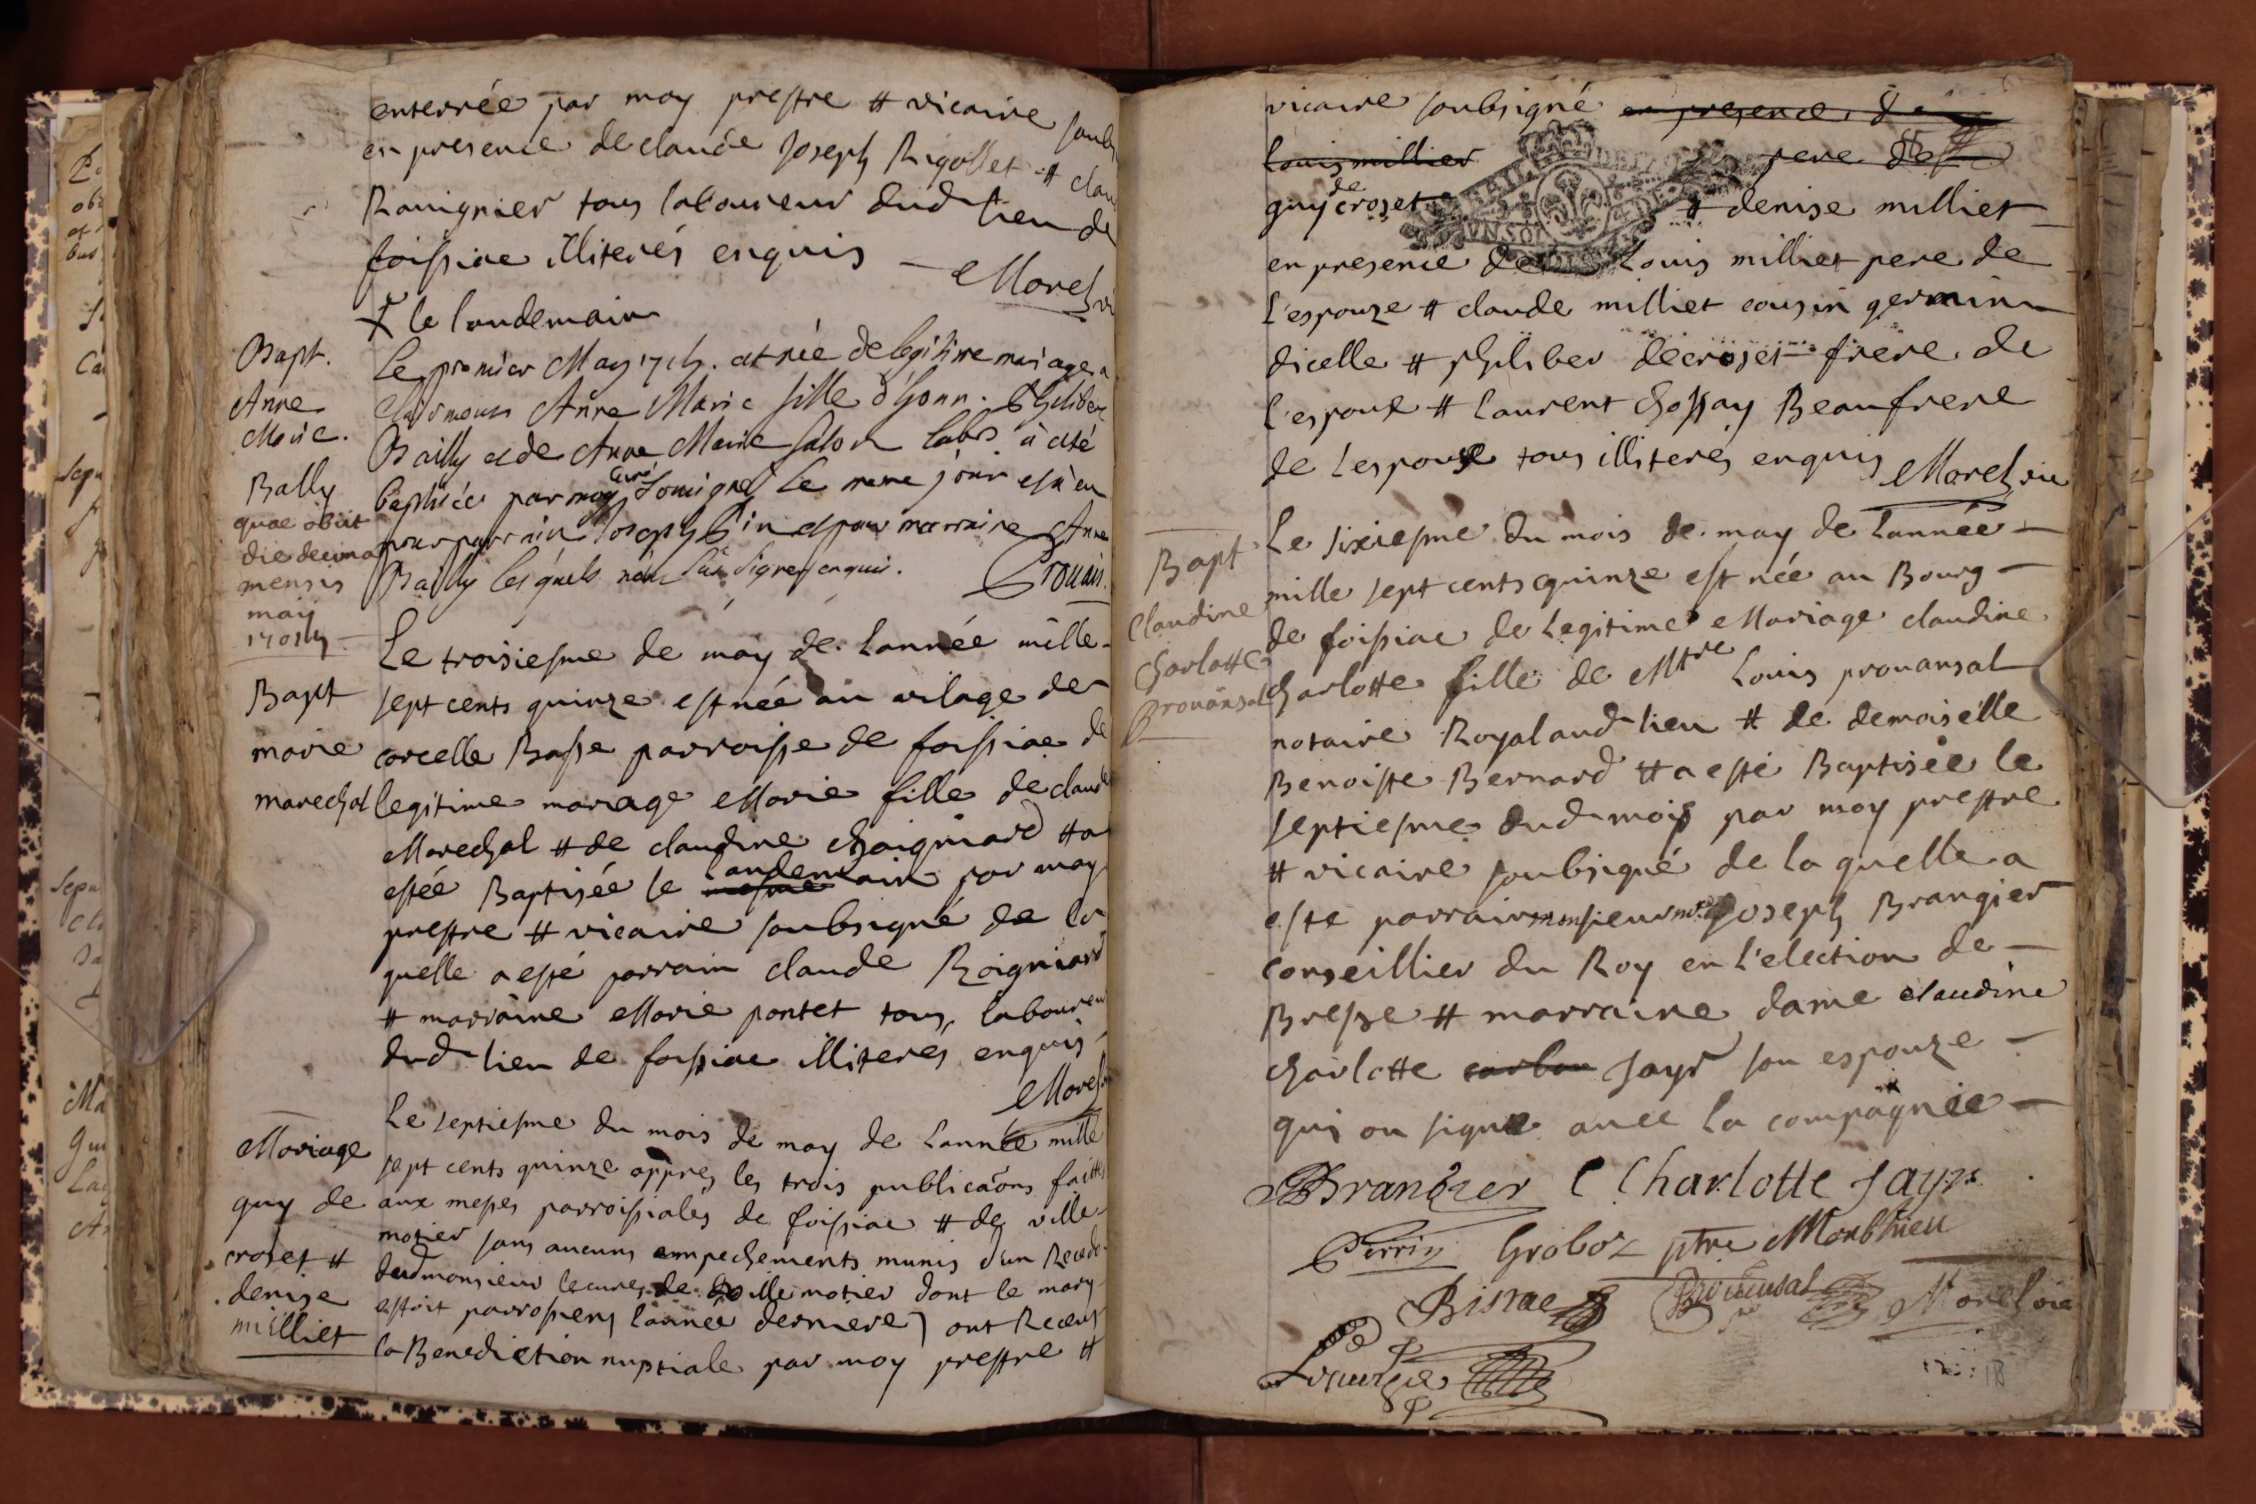 enterrée par moy prestre # vicaire soubs
en presence de claude Joseph Rigollet # clau
Rouignier tous laboureur dud lieu de
foissiac illiterés enquis — Morel vi
le landemain
Bapt.
Anne
Marie.
Bally
quae obiit
die decima
mensis
maij
Le premier May 1715. est née de legitime mariage a
Anne Marie fille d'honn. Philibert
Bailly et de Anne Marie labr à eté
baptisée par moy curé Souigné le meme jour et a eu
pour parrain Joseph et pour marraine Anne
Bailly lesquels n'ont sçu signer enquis.
Bapt
marie
marechal
Le troisiesme de may de Lannée mille
sept cents quinze est née au vilage de
corcelle Basse parroisse de foissiac de
legitime mariage Marie fille de claude
Marechal # de claudine Choigniard # a
estée Baptisée le mesme landemain par moy
prestre # vicaire soubsigné de la
quelle a esté parrain claude Roigniard
# marraine Marie pontet tous laboureur
dud lieu de foissiac illiteres enquis
Morel
Mariage
guy de
croset #
denise
milliet
Le septiesme du mois de may de Lannée mille
sept cents quinze appres les trois publicaõns faittes
aux messes parroissiales de foissiac # de ville
motier sans aucuns empechements munis d'un Recedo
dud monsieur le curé de ville motier dont le mary
estoit parrossiens lannée derniere ont Receus
la Benediction nuptiale par moy prestre #
vicaire soubsigné en presence de
Louis millier pere de
guy de croset # denise milliet
en presence de Louis milliet pere de
l'espouze # claude milliet cousin germain
dicelle # philiber decroset frere de
l'espoux # Laurent Chossay Beaufrere
de Lespoux tous illiteres enquis Morel vic
Bapt
claudine
charlotte
prouansal
Le sixiesme du mois de may de Lannée
mille sept cents quinze est née au Bourg
de foissiac de Legitime Mariage claudine
charlotte fille de Mtre Louis prouansal
notaire Royal aud lieu # de demoiselle
Benoiste Bernard # a esté Baptisée le
septiesme dud mois par moy prestre
# vicaire soubsigné de la quelle a
este parrain monsieur mre Joseph Brangier
conseillier du Roy en l'election de
Bresse # marraine dame claudine
charlotte Jayr son espouze
qui on signe avec la compagnie
Brangier C Charlotte Jayr
Perrin Groboz ptre Monthieu
Bisrae Prouansal Morel vic